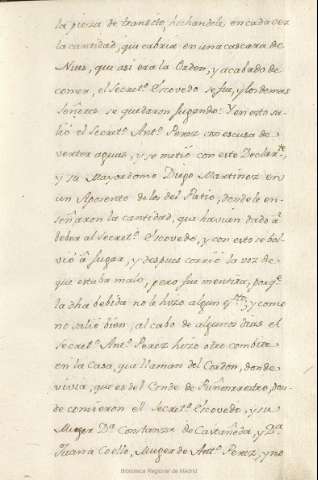 la pieza de transito, hechandole en cada vez
la cantidad, que cabria en una cascara de
Nuez, que asi era la Orden, y acabado de
comer, el Secret.º Escovedo se fue, y los demas
Señores se quedaron jugando: Y en esto sa-
lió el Secret.º Ant.º Perez con escusa de
verter aguas, y se metió con este Declar.te,
y su Mayordomo Diego Martinez en
un Aposento de los del Patio, donde le en-
señaron la cantidad, que havian dado á
beber al Secret.º Escovedo, y con esto se bol-
vió á jugar, y despues corrió la voz de
que estaba malo, pero fue mentira, porq.e
la dha bebida no le hizo algun efto; y como
no salió bien, al cabo de algunos dias el
Secret.º Ant.º Perez hizo otro combite
en la Casa, que llaman del Cordon, donde
vivia, que es del Conde de Puñonrostro, don-
de comieron el Secret.º Escovedo, y su
Muger D.ª Constanza de Castañeda, y D.ª
Juana Coello, Muger de Ant.º Perez, y no
Biblioteca Regional de Madrid